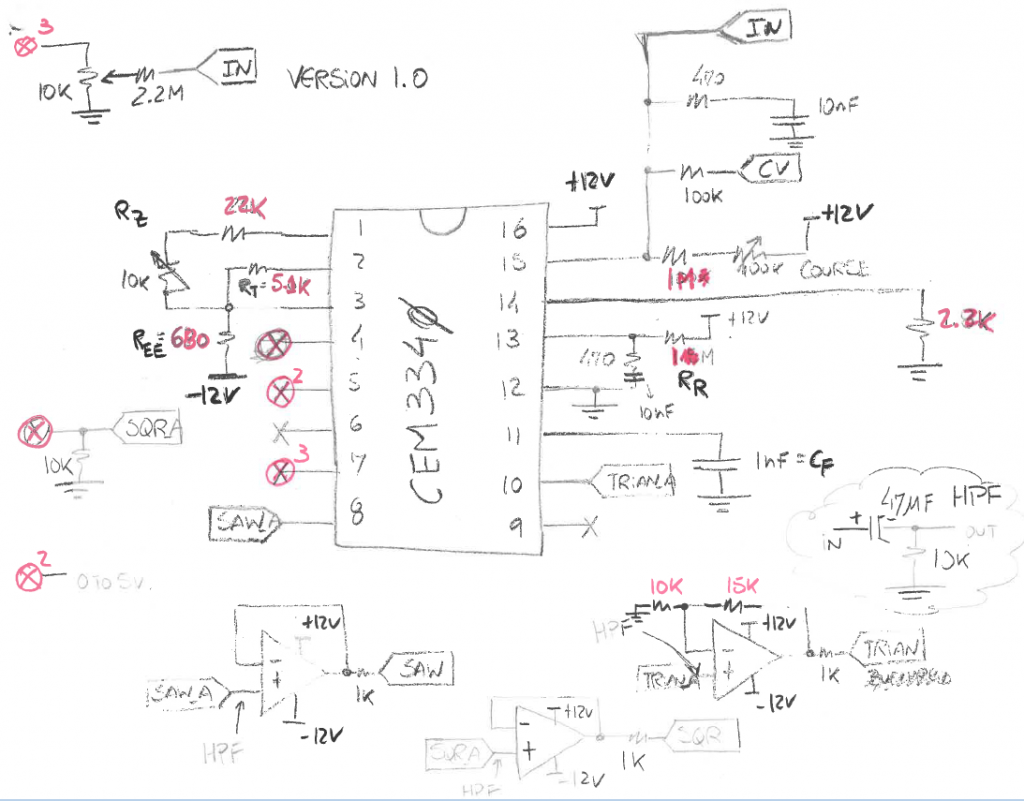 3
10K
2.2M
IN
VERSION 1.0
IN
470
10nF
CV
100K
+12V
+12V
100K COURSE
RZ
22K
10K
RT=
REE=680
-12V
1
2
3
4
5
6
7
8
CEM3340
16
15
14
13
12
11
10
9
2
3
2.2K
+12V
470
RR
10nF
1nF = CF
TRIANA
SQRA
10K
SAWA
47µF HPF
+
IN
OUT
10K
2
0 TO 5V.
+12V
-
+
SAWA
HPF
-12V
1K
SAW
10K
15K
HPF
+12V
-
+
TRIANA
-12V
1K
TRIAN
+12V
-
+
SQRA
HPF
-12V
1K
SQR